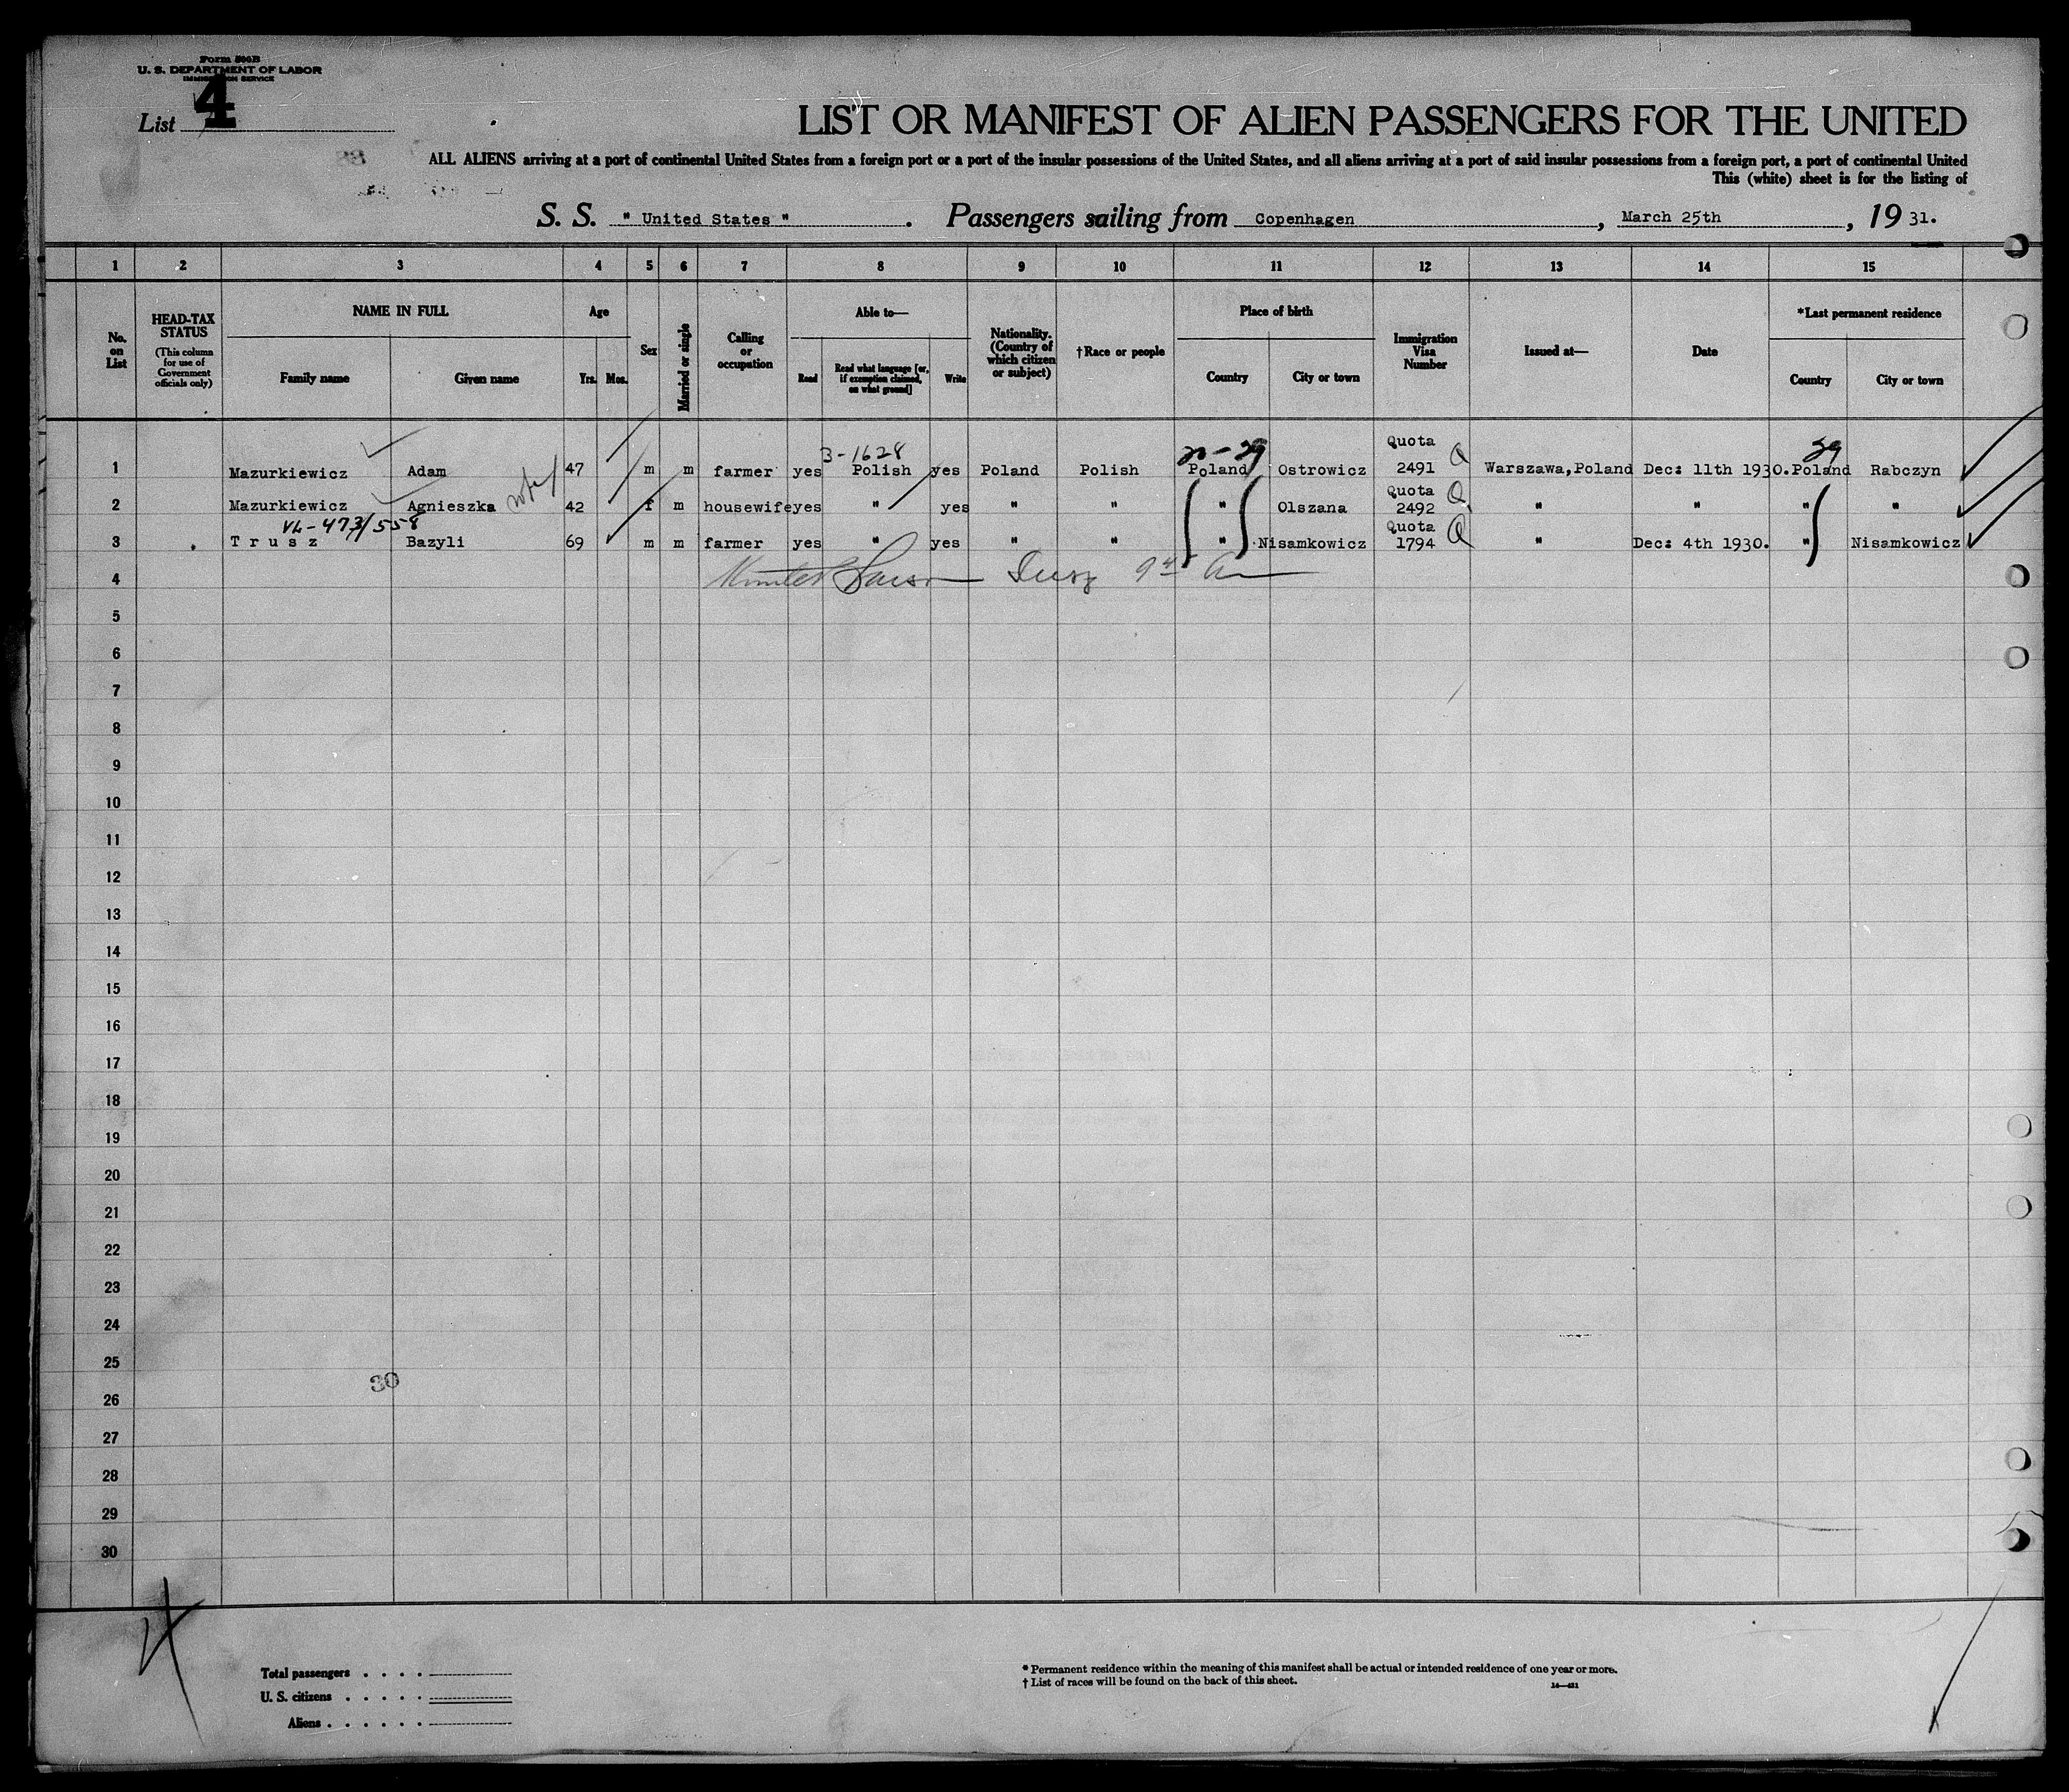 Form 500B
U. S. DEPARTMENT OF LABOR
IMMIGRATION SERVICE
List 4
LIST OR MANIFEST OF ALIEN PASSENGERS FOR THE UNITED
ALL ALIENS arriving at a port of continental United States from a foreign port or a port of the insular possessions of the United States, and all aliens arriving at a port of said insular possessions from a foreign port, a port of continental United
This (white) sheet is for the listing of
S. S. " United States ". Passengers sailing from Copenhagen, March 25th, 19 31.
1 2 3 4 5 6 7 8 9 10 11 12 13 14 15
No. on List
HEAD-TAX STATUS (This column for use of Government officials only)
NAME IN FULL
Family name Given name
Age
Yrs. Mos.
Sex
Married or single
Calling or occupation
Able to—
Read Read what language [or, if exemption claimed, on what ground] Write
Nationality. (Country of which citizen or subject)
†Race or people
Place of birth
Country City or town
Immigration Visa Number
Issued at—
Date
*Last permanent residence
Country City or town
3-1628 29 Quota
1 Mazurkiewicz Adam 47 m m farmer yes Polish yes Poland Polish Poland Ostrowicz 2491 Q Warszawa,Poland Dec: 11th 1930. Poland Rabczyn
Quota
2 Mazurkiewicz Agnieszka 42 f m housewife yes " yes " " " Olszana 2492 Q " " " "
VL-473/558 Quota
3 T r u s z Bazyli 69 m m farmer yes " yes " " " Nisamkowicz 1794 Q " Dec: 4th 1930. " Nisamkowicz
4
5
6
7
8
9
10
11
12
13
14
15
16
17
18
19
20
21
22
23
24
25
30
26
27
28
29
30
Total passengers . . . .
U. S. citizens . . . . .
Aliens . . . . . .
* Permanent residence within the meaning of this manifest shall be actual or intended residence of one year or more.
† List of races will be found on the back of this sheet.
14—431